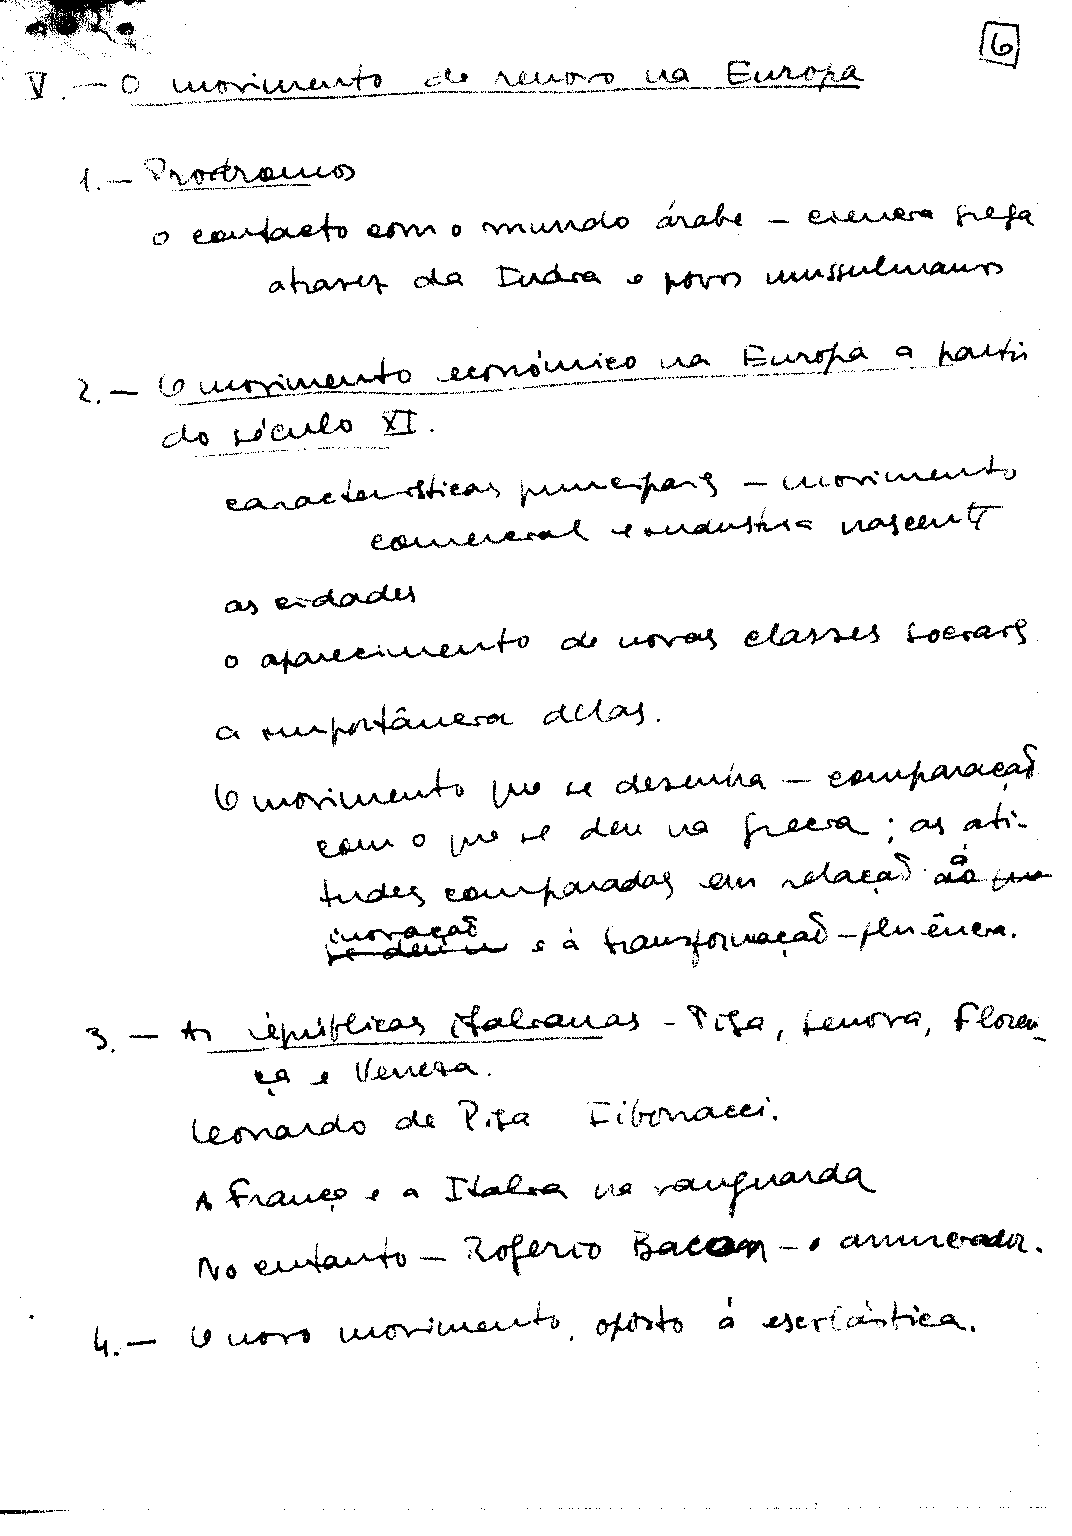 6
V. — O movimento de renovo na Europa
1. — Prodromos
o contacto com o mundo árabe — ciencia grega
atravez da India e povos mussulmanos
2. — O movimento económico na Europa a partir
do século XI.
características principais — movimento
comercial e industria nascente
as cidades
o aparecimento de novas classes sociais
a importância delas.
O movimento que se desenha — comparação
com o que se deu na Grecia ; as ati-
tudes comparadas em relação à
inovação e á transformação — fluência.
3. — As repúblicas italianas — Pisa, Genova, Floren-
ça e Veneza.
Leonardo de Pisa Fibonacci.
A França e a Italia na vanguarda
No entanto — Rogerio Bacon — o anunciador.
4. — O novo movimento, oposto á escolástica.